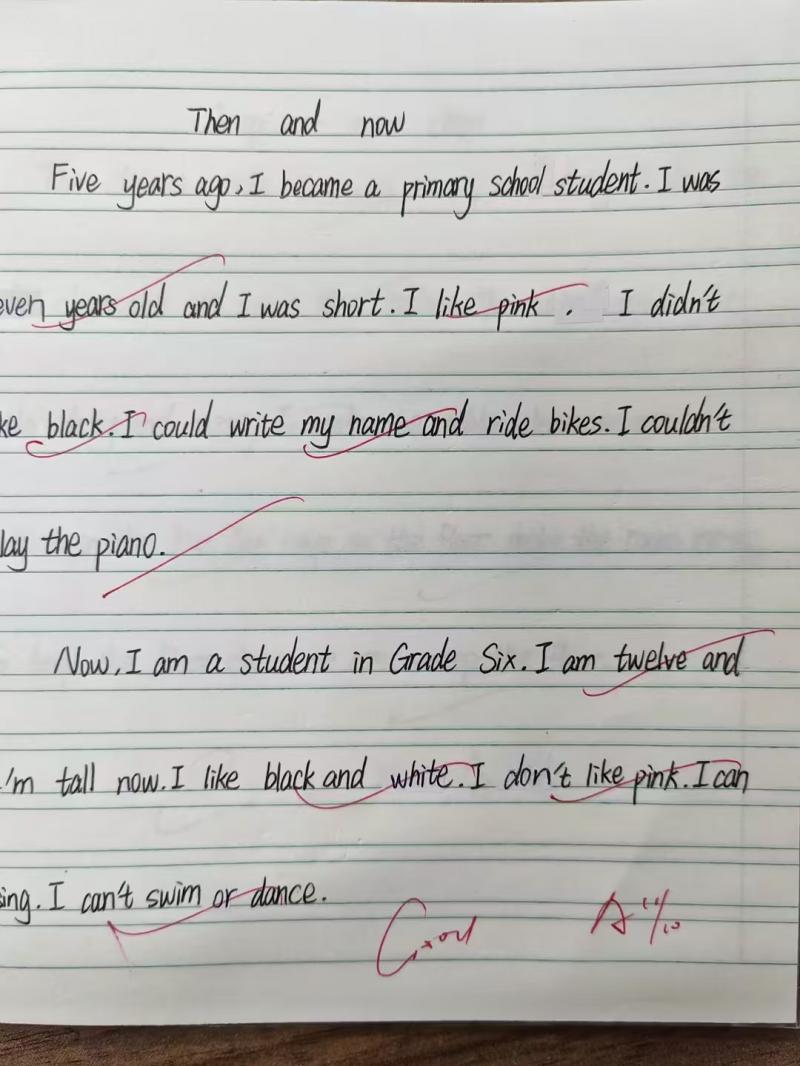 Then and now
Five years ago, I became a primary school student. I was
even years old and I was short. I like pink . I didn't
ke black. I could write my name and ride bikes. I couldn't
lay the piano.
Now, I am a student in Grade Six. I am twelve and
I'm tall now. I like black and white. I don't like pink. I can
sing. I can't swim or dance.
Good
A